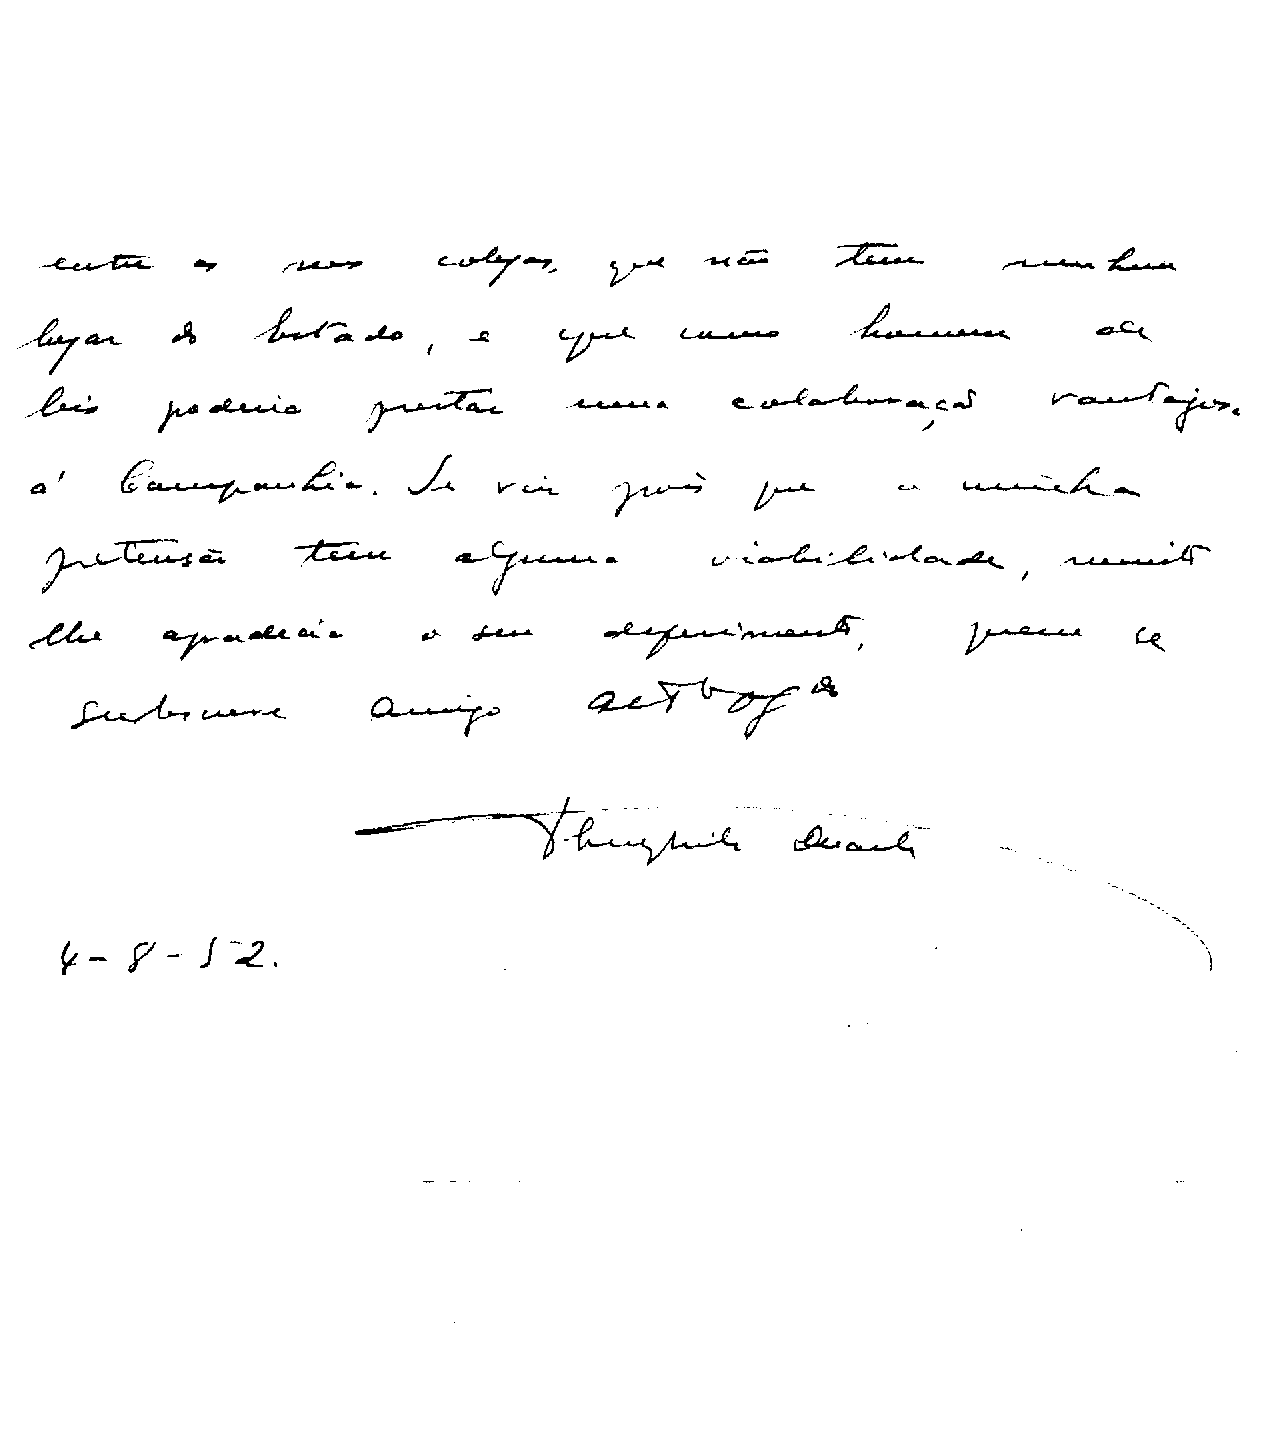 entre os seus colegas, que não tem nenhum
lugar do Estado, e que como homem de
leis poderia prestar uma colaboração vantajosa
á Companhia. Se vir pois que a minha
pretensão tem alguma viabilidade, muito
lhe agradecia o seu deferimento, quem se
subscreve amigo
Theophilo Duarte
4-8-52.